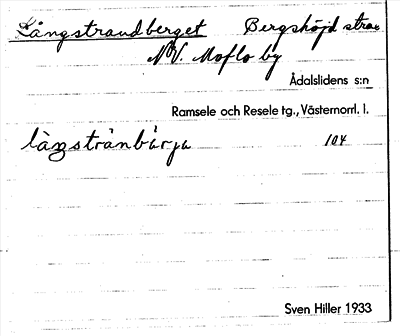 Långstrandberget Bergshöjd strax
NV. Moflo by
Ådalslidens s:n
Ramsele och Resele tg., Västernorrl. l.
làŋstrànbǽrjə 104
Sven Hiller 1933